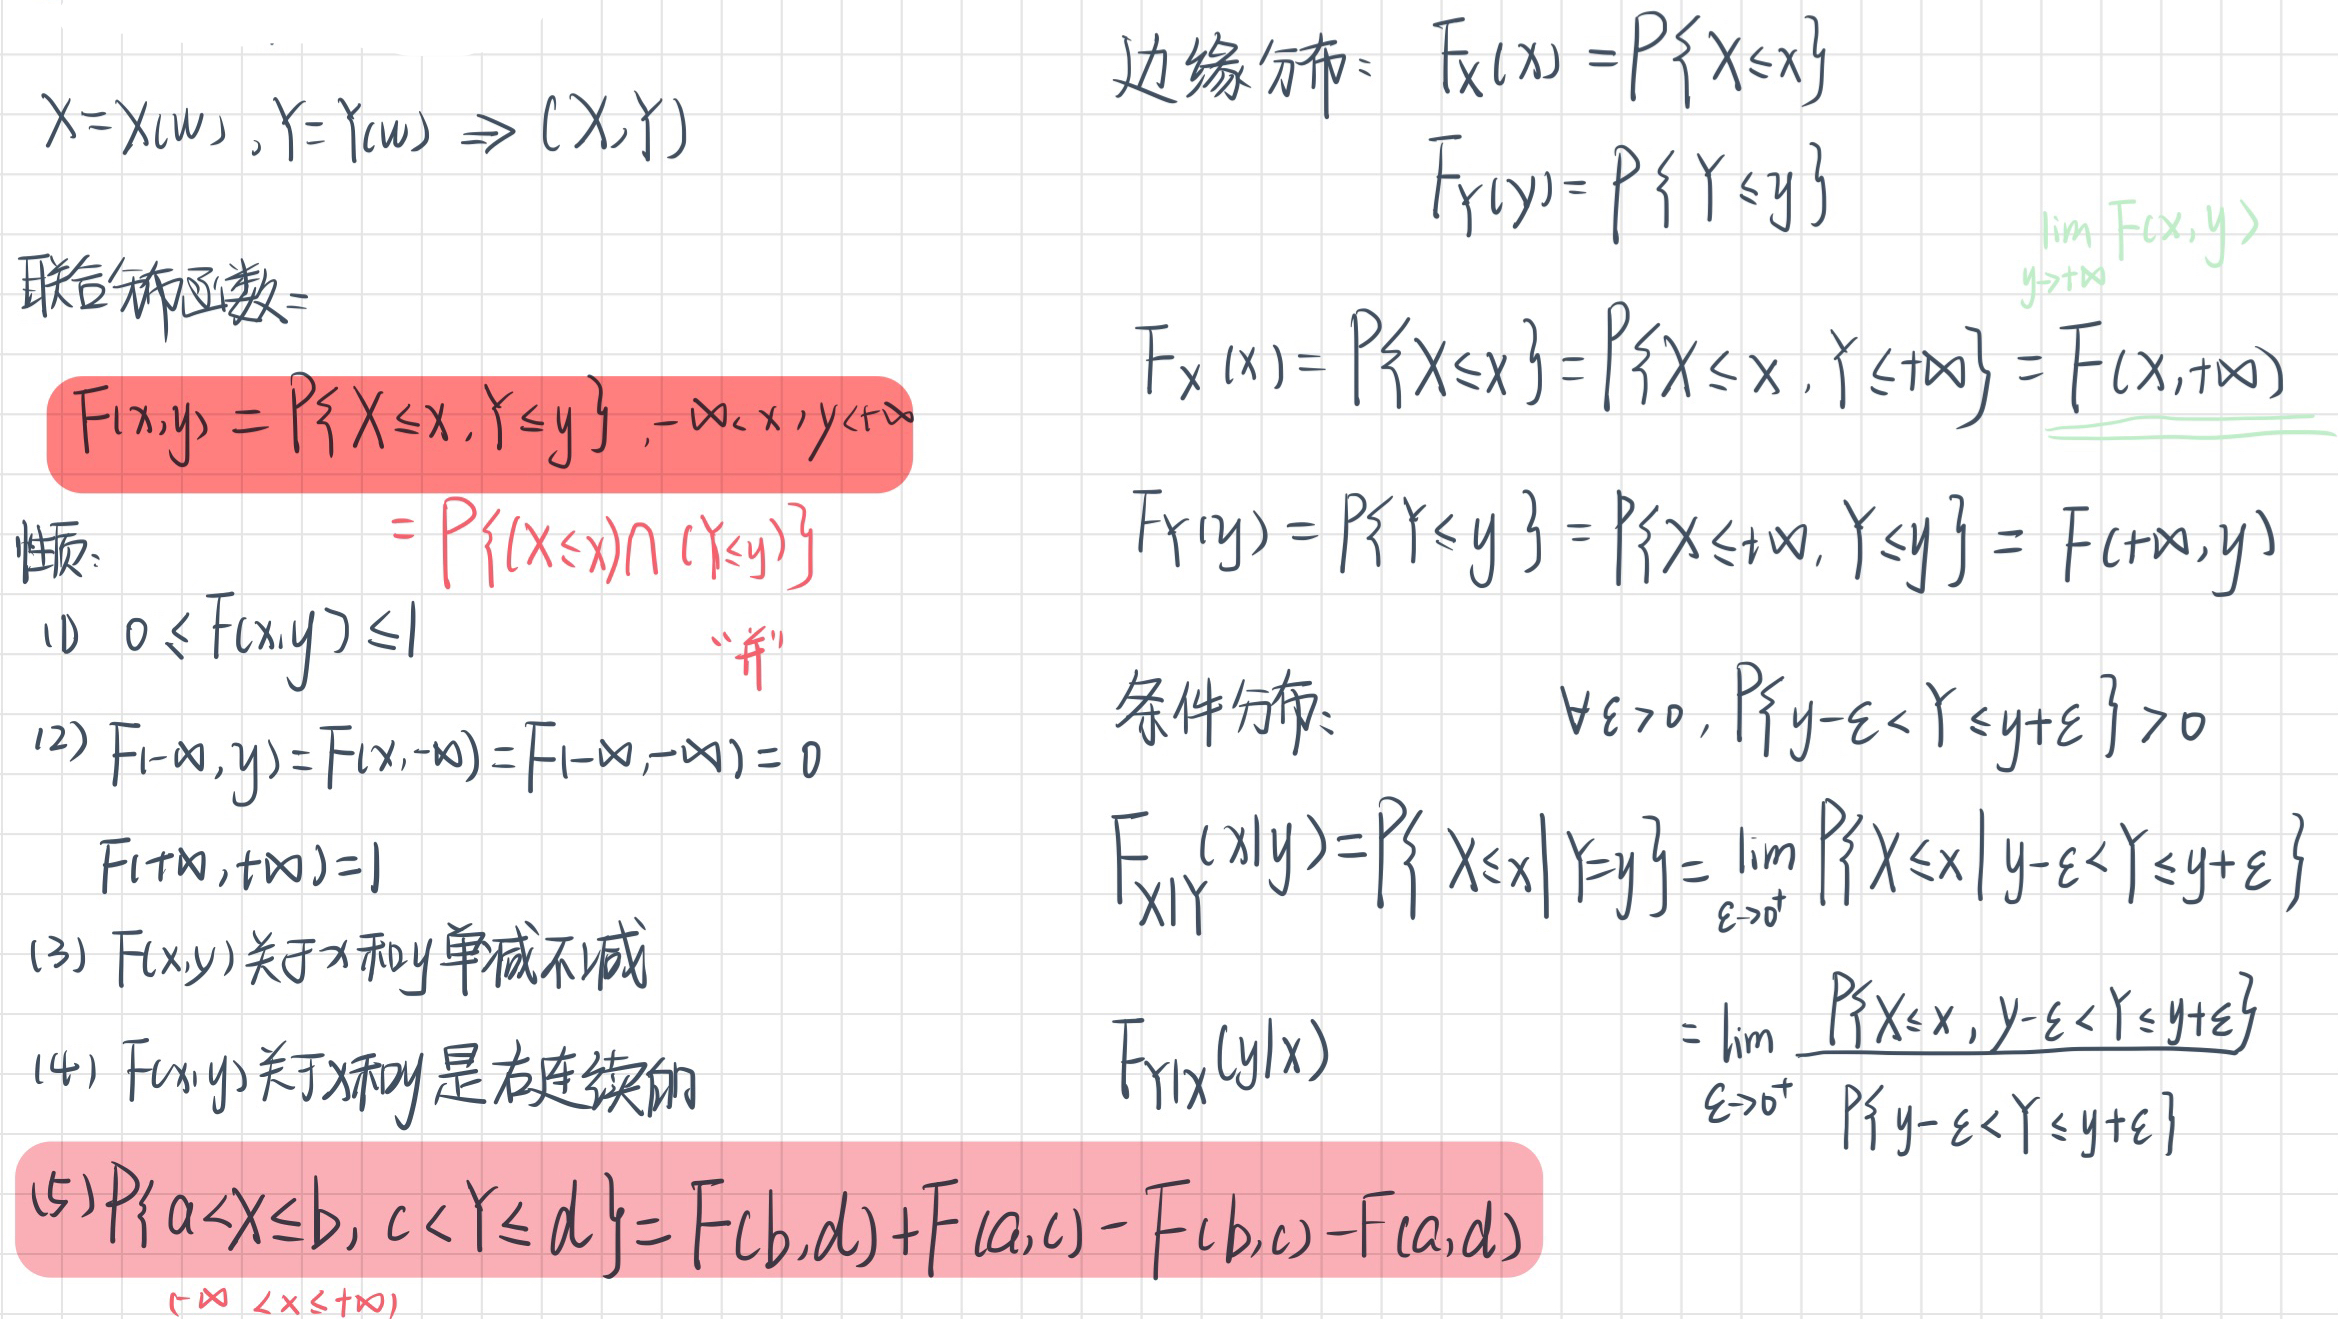 X=X(w),Y=Y(w) ⇒ (X,Y)
联合分布函数:
F(x,y) = P{X≤x,Y≤y},-∞<x,y<+∞
= P{(X≤x)∩(Y≤y)}
性质:
“并”
(1) 0≤F(x,y)≤1
(2) F(-∞,y)=F(x,-∞)=F(-∞,-∞)=0
F(+∞,+∞)=1
(3) F(x,y)关于x和y单减不减
(4) F(x,y)关于x和y是右连续的
(5) P{a<X≤b, c<Y≤d}=F(b,d)+F(a,c)-F(b,c)-F(a,d)
(-∞<x≤+∞)
边缘分布: F_X(x)=P{X≤x}
F_Y(y)=P{Y≤y}
lim F(x,y)
y→+∞
F_X(x)=P{X≤x}=P{X≤x,Y≤+∞}=F(x,+∞)
F_Y(y)=P{Y≤y}=P{X≤+∞,Y≤y}=F(+∞,y)
条件分布: ∀ε>0,P{y-ε<Y≤y+ε}>0
F_{X|Y}(x|y)=P{X≤x|Y=y}=lim P{X≤x|y-ε<Y≤y+ε}
ε→0⁺
P{X≤x,y-ε<Y≤y+ε}
F_{Y|X}(y|x) =lim
ε→0⁺ P{y-ε<Y≤y+ε}